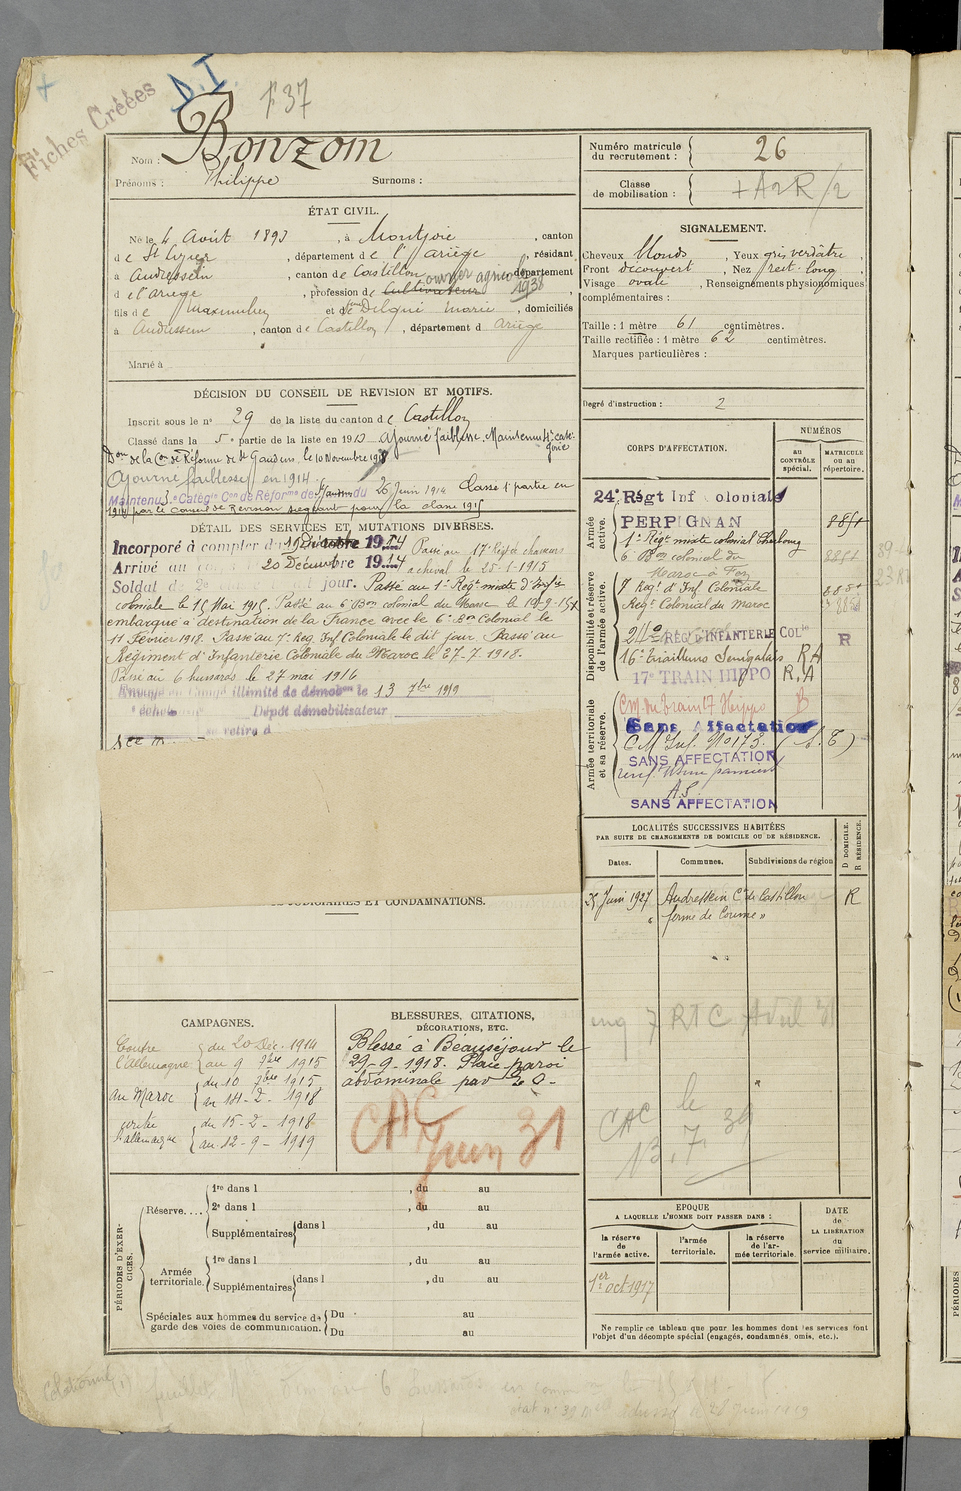 Fiches Créées
D.I.
137
Nom : Bonzom
Prénoms : Philippe Surnoms :
Numéro matricule du recrutement : 26
Classe de mobilisation : + A2R/2
ÉTAT CIVIL.
Né le 4 Août 1893, à Montjoie, canton
de St Lizier, département de l'Ariège, résidant
à Audressein, canton de Castillon, département
de l'ariège, profession de cultivateur ouvrier agricole 1938
fils de Maximilien et de Delqué Marie, domiciliés
à Audressein, canton de Castillon, département d Ariège
Marié à
SIGNALEMENT.
Cheveux blonds, Yeux gris verdâtre,
Front découvert, Nez rect. long,
Visage ovale, Renseignements physionomiques
complémentaires :
Taille : 1 mètre 61 centimètres.
Taille rectifiée : 1 mètre 62 centimètres.
Marques particulières :
Degré d'instruction : 2
DÉCISION DU CONSEIL DE REVISION ET MOTIFS.
Inscrit sous le n° 29 de la liste du canton de Castillon
Classé dans la 5e partie de la liste en 1913 ajourné faiblesse. Maintenu 4e catégorie
Don de la Con de Réforme de St Gaudens le 10 Novembre 1938
Ajourné faiblesse en 1914
Maintenu 3e Catégie Con de Réforme de St Gaudens du 26 Juin 1914 Classé 1e partie en
1914 par le Conseil de Revision siégeant pour la classe 1915
DÉTAIL DES SERVICES ET MUTATIONS DIVERSES.
Incorporé à compter du 19 Décembre 1914 Passé au 17e Régt de chasseurs
Arrivé au 20 Décembre 1914 à cheval le 25-1-1915
Soldat de 2e jour. Passé au 1er Regt mixte d'Infie
coloniale le 15 Mai 1915. Passé au 6e Bon colonial du Maroc le 19-9-15
embarqué à destination de la France avec le 6e Bon Colonial le
11 Février 1918. Passé au 7e Reg. Inf Coloniale le dit jour. Passé au
Régiment d'Infanterie Coloniale du Maroc le 27-7-1918.
Passé au 6 hussards le 27 mai 1916
illimité de démobon le 13 7bre 1919
Dépôt démobilisateur
se retire à
CORPS D'AFFECTATION.
NUMÉROS
au CONTRÔLE spécial.
MATRICULE ou au répertoire.
Armée active.
24e Régt Inf Coloniale
PERPIGNAN
1er Régt mixte colonial Cherbourg
6e Bon colonial du
Maroc à Fez
Disponibilité et réserve de l'armée active.
7 Regt d'Inf Coloniale
Regt Colonial du Maroc
24e RÉGt D'INFANTERIE COLle R
16e Tirailleurs Sénégalais RA
17e TRAIN HIPPO R.A
Armée territoriale et sa réserve.
CM du train 17 Hippo B
Sans Affectation
CM Inf. N° 173. (A.T)
SANS AFFECTATION
A.S.
SANS AFFECTATION
LOCALITÉS SUCCESSIVES HABITÉES
PAR SUITE DE CHANGEMENTS DE DOMICILE OU DE RÉSIDENCE.
Dates. Communes. Subdivisions de région
D DOMICILE. R RÉSIDENCE.
25 Juin 1927 Audressein Cn de Castillon R
" ferme de Coume "
JUDICIAIRES ET CONDAMNATIONS.
CAMPAGNES.
Contre l'Allemagne du 20 Déc. 1914
au 9 7bre 1915
au Maroc du 10 7bre 1915
au 14-2-1918
contre l'allemagne du 15-2-1918
au 12-9-1919
BLESSURES, CITATIONS,
DÉCORATIONS, ETC.
Blessé à Beauséjour le
29-9-1918. Plaie paroi
abdominale par E O -
CAC Juin 31
7 RTC Avril 31
CAC le
13.7 39
PÉRIODES D'EXERCICES.
Réserve....
1re dans l , du au
2e dans l , du au
Supplémentaires dans l , du au
Armée territoriale.
1re dans l , du au
Supplémentaires dans l , du au
Spéciales aux hommes du service de garde des voies de communication.
Du au
Du au
EPOQUE
A LAQUELLE L'HOMME DOIT PASSER DANS :
la réserve de l'armée active.
l'armée territoriale.
la réserve de l'armée territoriale.
DATE de LA LIBÉRATION du service militaire.
1er oct 1917
Ne remplir ce tableau que pour les hommes dont les services font
l'objet d'un décompte spécial (engagés, condamnés, omis, etc.).